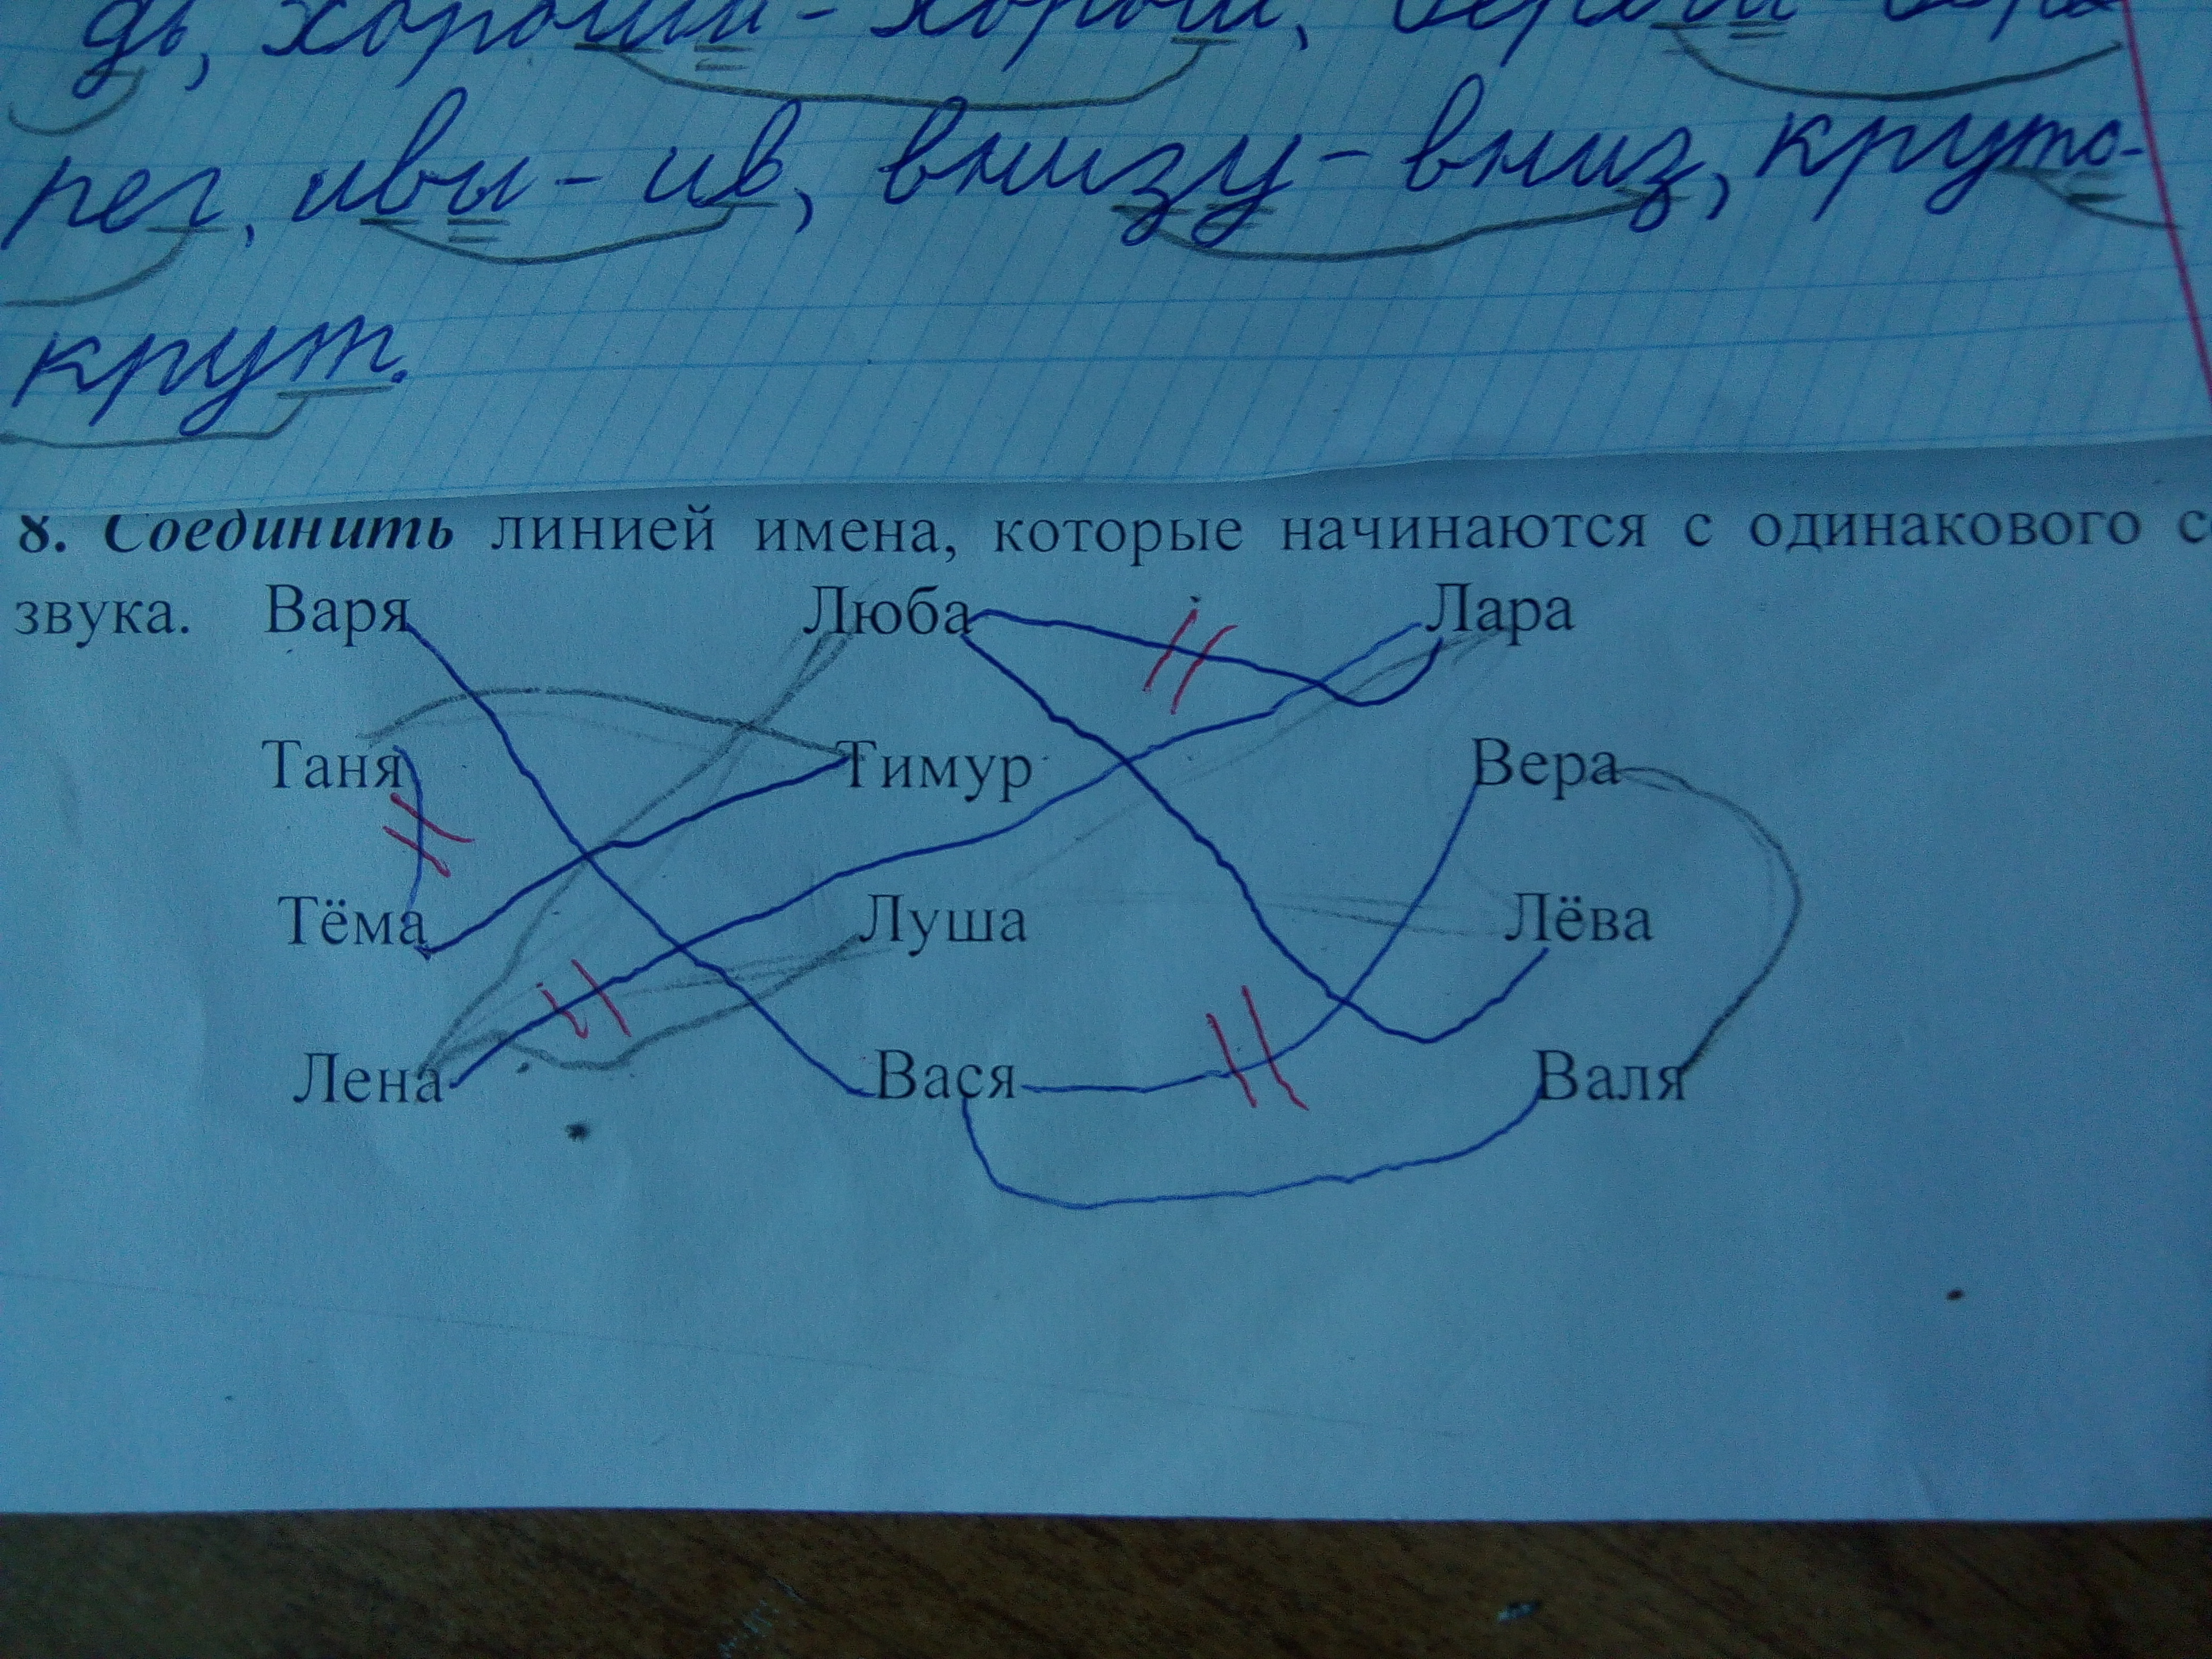 дь, хороши - хорош,
рег, ивы - ив, внизу - вниз, круто-
крут.
8. Соединить линией имена, которые начинаются с одинакового с
звука. Варя Люба Лара
Таня Тимур Вера
Тёма Луша Лёва
Лена Вася Валя